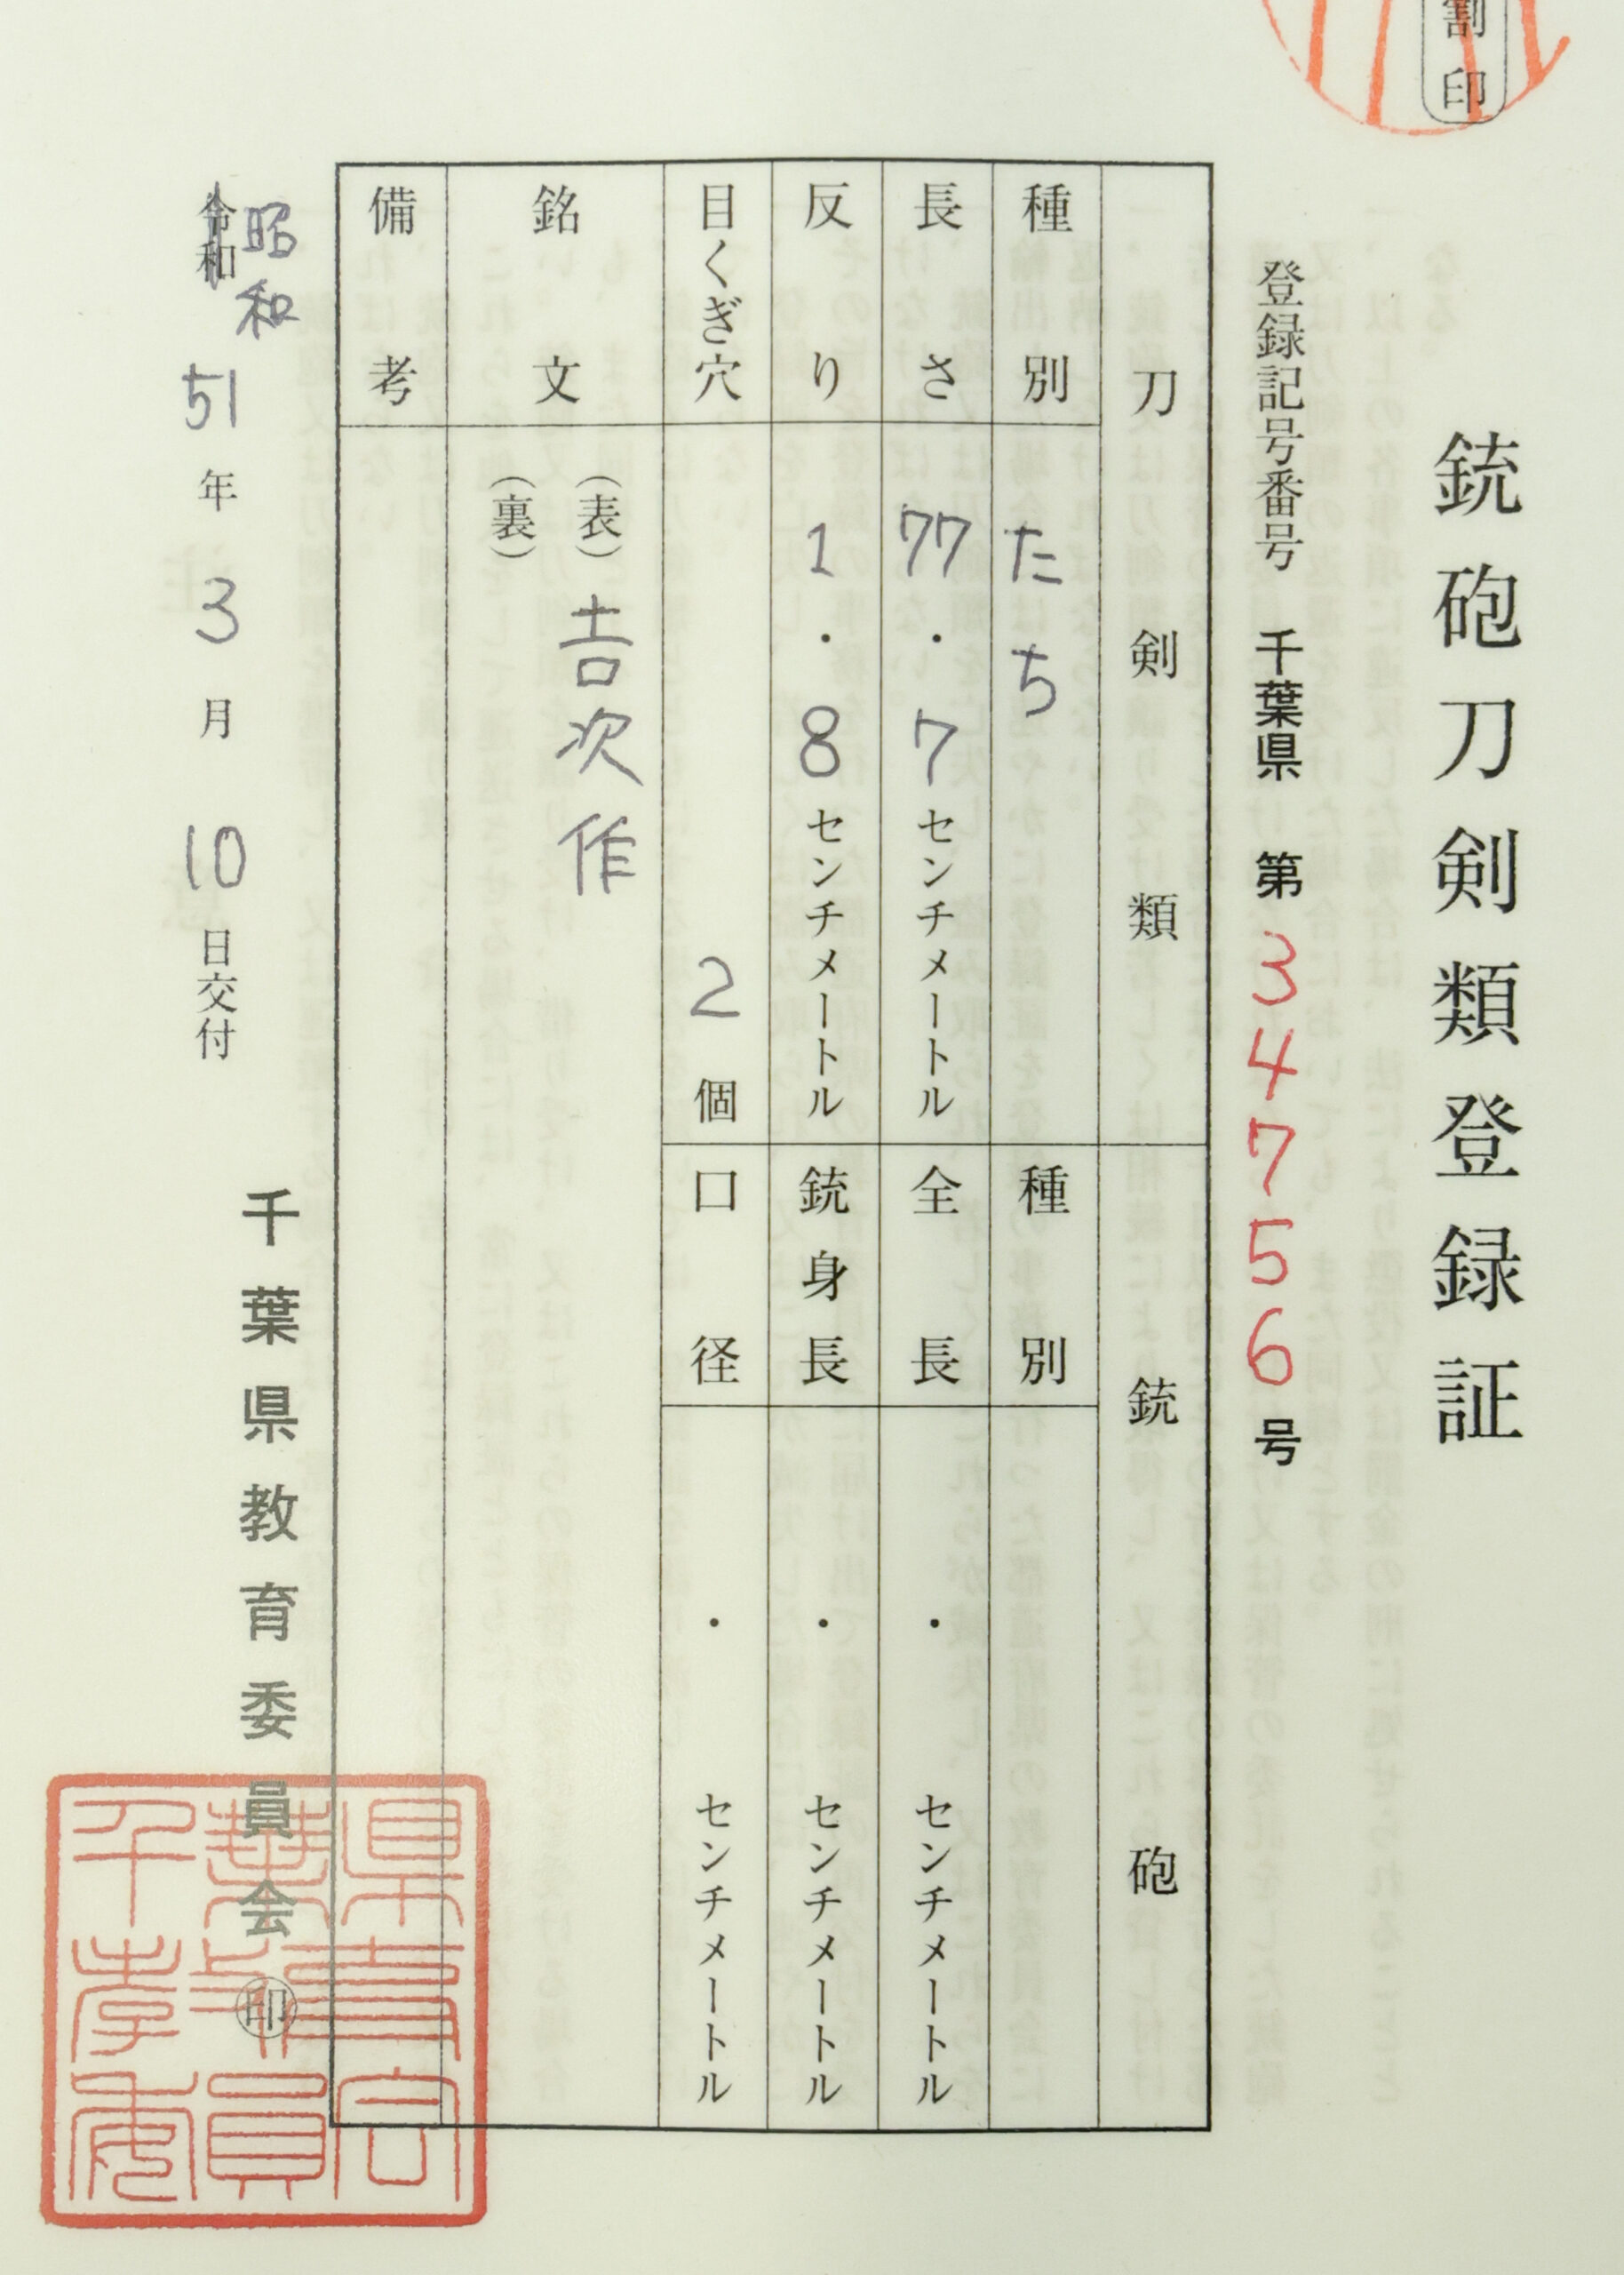 割印
銃砲刀剣類登録証
登録記号番号 千葉県 第34756号
刀剣類
種別 たち
長さ 77.7センチメートル
反り 1.8センチメートル
目くぎ穴 2個
銘文 (表) 吉次作
(裏)
備考
銃砲
種別
全長 ・ センチメートル
銃身長 ・ センチメートル
口径 ・ センチメートル
令和
昭和51年3月10日交付
千葉県教育委員会 ㊞